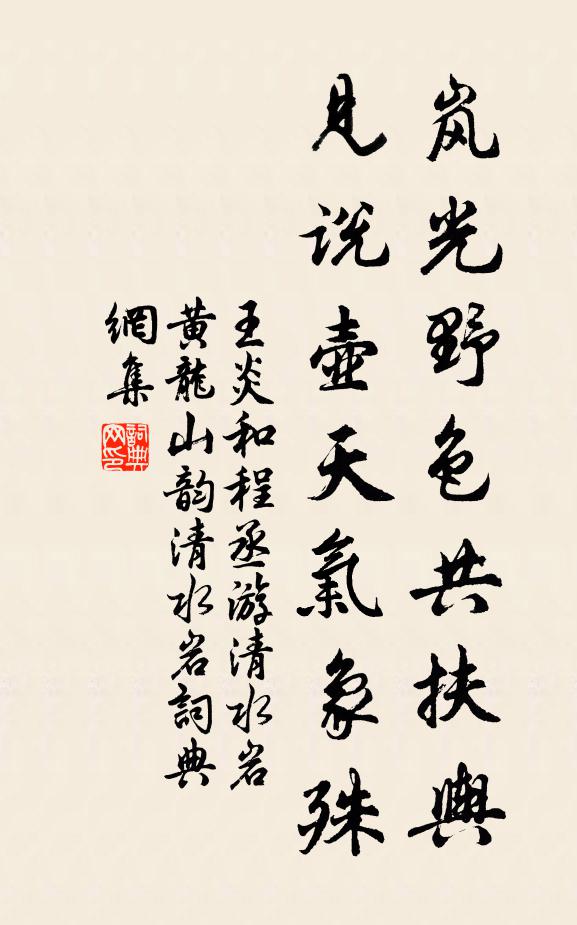 岚光野色共扶輿
見説壺天氣象殊
王炎和程丞游清水岩
黄龍山韵清水岩詞典
網集
詞典網印